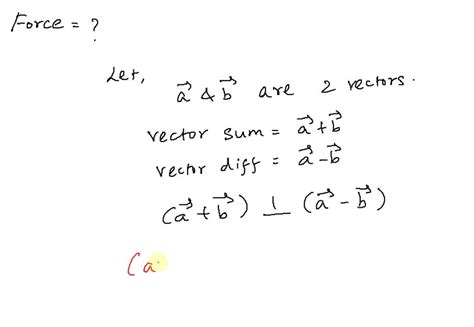 Force = ?
Let,
a⃗ & b⃗ are 2 vectors.
vector sum = a⃗ + b⃗
vector diff = a⃗ - b⃗
(a⃗ + b⃗) ⊥ (a⃗ - b⃗)
(a